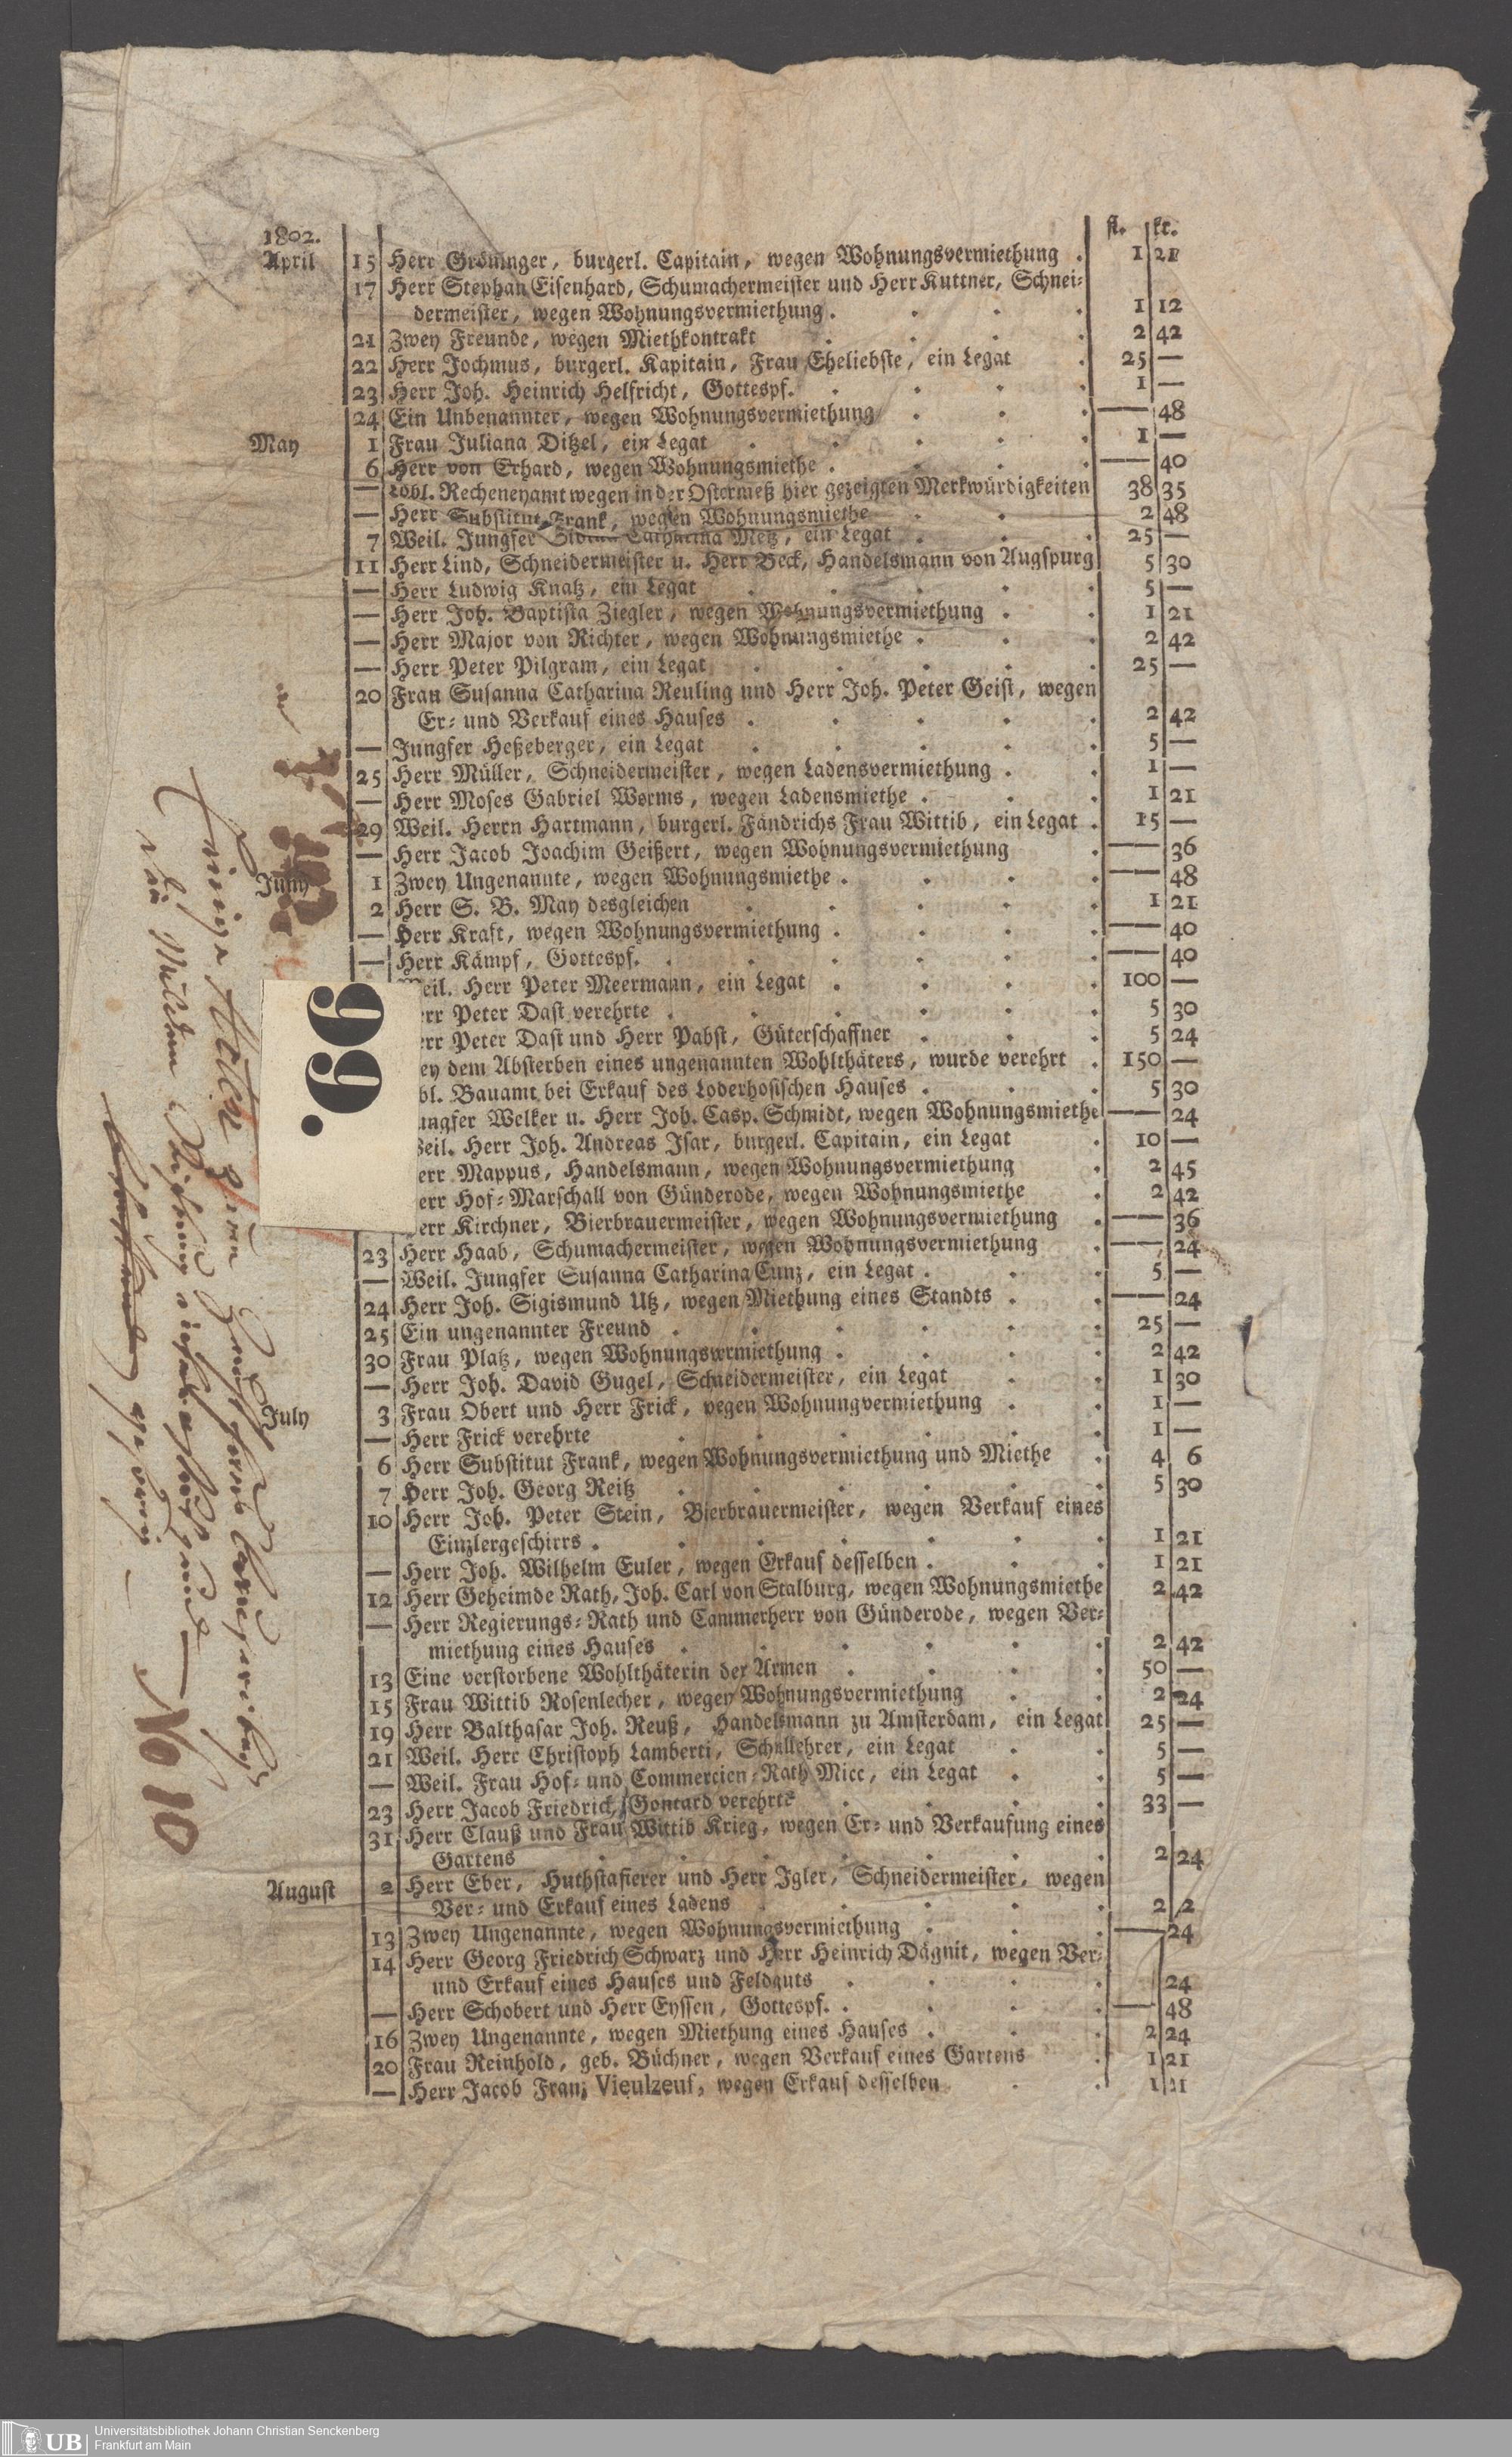 1802. fl. kr.
April 15 Herr Gröninger, burgerl. Capitain, wegen Wohnungsvermiethung . 1 21
17 Herr Stephan Eisenhard, Schumachermeister und Herr Kuttner, Schnei-
dermeister, wegen Wohnungsvermiethung . . . . 1 12
21 Zwey Freunde, wegen Miethkontrakt . . . . 2 42
22 Herr Jochmus, burgerl. Kapitain, Frau Eheliebste, ein Legat . 25 —
23 Herr Joh. Heinrich Helfricht, Gottespf. . . . . 1 —
24 Ein Unbenannter, wegen Wohnungsvermiethung . . . — 48
May 1 Frau Juliana Ditzel, ein Legat . . . . . 1 —
6 Herr von Erhard, wegen Wohnungsmiethe . . . . — 40
— Löbl. Recheneyamt wegen in der Ostermeß hier gezeigten Merkwürdigkeiten 38 35
— Herr Substitut Frank, wegen Wohnungsmiethe . . 2 48
7 Weil. Jungfer Catharina Metz, ein Legat . . . 25 —
11 Herr Lind, Schneidermeister u. Herr Beck, Handelsmann von Augspurg 5 30
— Herr Ludwig Knatz, ein Legat . . . . . 5 —
— Herr Joh. Baptista Ziegler, wegen Wohnungsvermiethung . . 1 21
— Herr Major von Richter, wegen Wohnungsmiethe . . . 2 42
— Herr Peter Pilgram, ein Legat . . . . . 25 —
20 Frau Susanna Catharina Reuling und Herr Joh. Peter Geist, wegen
Er- und Verkauf eines Hauses . . . . . 2 42
— Jungfer Heßeberger, ein Legat . . . . . 5 —
25 Herr Müller, Schneidermeister, wegen Ladensvermiethung . . 1 —
— Herr Moses Gabriel Worms, wegen Ladensmiethe . . . 1 21
29 Weil. Herrn Hartmann, burgerl. Fändrichs Frau Wittib, ein Legat . 15 —
— Herr Jacob Joachim Geißert, wegen Wohnungsvermiethung . — 36
Juny 1 Zwey Ungenannte, wegen Wohnungsmiethe . . . . — 48
2 Herr S. B. May desgleichen . . . . . 1 21
— Herr Kraft, wegen Wohnungsvermiethung . . . . — 40
— Herr Kämpf, Gottespf. . . . . . — 40
eil. Herr Peter Meermann, ein Legat . . . . 100 —
err Peter Dast verehrte . . . . . . 5 30
err Peter Dast und Herr Pabst, Güterschaffner . . . 5 24
ey dem Absterben eines ungenannten Wohlthäters, wurde verehrt . 150 —
bl. Bauamt bei Erkauf des Loderhosischen Hauses . . . 5 30
ungfer Welker u. Herr Joh. Casp. Schmidt, wegen Wohnungsmiethe — 24
eil. Herr Joh. Andreas Isar, burgerl. Capitain, ein Legat . 10 —
err Mappus, Handelsmann, wegen Wohnungsvermiethung . 2 45
err Hof-Marschall von Günderode, wegen Wohnungsmiethe . 2 42
err Kirchner, Bierbrauermeister, wegen Wohnungsvermiethung . — 36
23 Herr Haab, Schumachermeister, wegen Wohnungsvermiethung . — 24
— Weil. Jungfer Susanna Catharina Cunz, ein Legat . . . 5 —
24 Herr Joh. Sigismund Utz, wegen Miethung eines Standts . . — 24
25 Ein ungenannter Freund . . . . . . 25 —
30 Frau Platz, wegen Wohnungsvermiethung . . . . 2 42
— Herr Joh. David Gugel, Schneidermeister, ein Legat . . 1 30
July 3 Frau Obert und Herr Frick, wegen Wohnungvermiethung . . 1 —
— Herr Frick verehrte . . . . . . 1 —
6 Herr Substitut Frank, wegen Wohnungsvermiethung und Miethe . 4 6
7 Herr Joh. Georg Reitz . . . . . . 5 30
10 Herr Joh. Peter Stein, Bierbrauermeister, wegen Verkauf eines
Einzlergeschirrs . . . . . . . 1 21
— Herr Joh. Wilhelm Euler, wegen Erkauf desselben . . . 1 21
12 Herr Geheimde Rath, Joh. Carl von Stalburg, wegen Wohnungsmiethe 2 42
— Herr Regierungs-Rath und Cammerherr von Günderode, wegen Ver-
miethung eines Hauses . . . . . . 2 42
13 Eine verstorbene Wohlthäterin der Armen . . . . 50 —
15 Frau Wittib Rosenlecher, wegen Wohnungsvermiethung . . 2 24
19 Herr Balthasar Joh. Reuß, Handelsmann zu Amsterdam, ein Legat 25 —
21 Weil. Herr Christoph Lamberti, Schullehrer, ein Legat . . 5 —
— Weil. Frau Hof- und Commercien-Rath Micc, ein Legat . . 5 —
23 Herr Jacob Friedrich Gontard verehrte . . . . 33 —
31 Herr Clauß und Frau Wittib Krieg, wegen Er- und Verkaufung eines
Gartens . . . . . . . 2 24
August 2 Herr Eber, Huthstafierer und Herr Igler, Schneidermeister, wegen
Ver- und Erkauf eines Ladens . . . . . 2 2
13 Zwey Ungenannte, wegen Wohnungsvermiethung . . . — 24
14 Herr Georg Friedrich Schwarz und Herr Heinrich Dägnit, wegen Ver-
und Erkauf eines Hauses und Feldguts . . . . 24
— Herr Schobert und Herr Eyssen, Gottespf. . . . . — 48
16 Zwey Ungenannte, wegen Miethung eines Hauses . . . 2 24
20 Frau Reinhold, geb. Büchner, wegen Verkauf eines Gartens . 1 21
— Herr Jacob Franz Vieulzeuf, wegen Erkauf desselben . . . 1 21
99.
No 10
UB Universitätsbibliothek Johann Christian Senckenberg
Frankfurt am Main